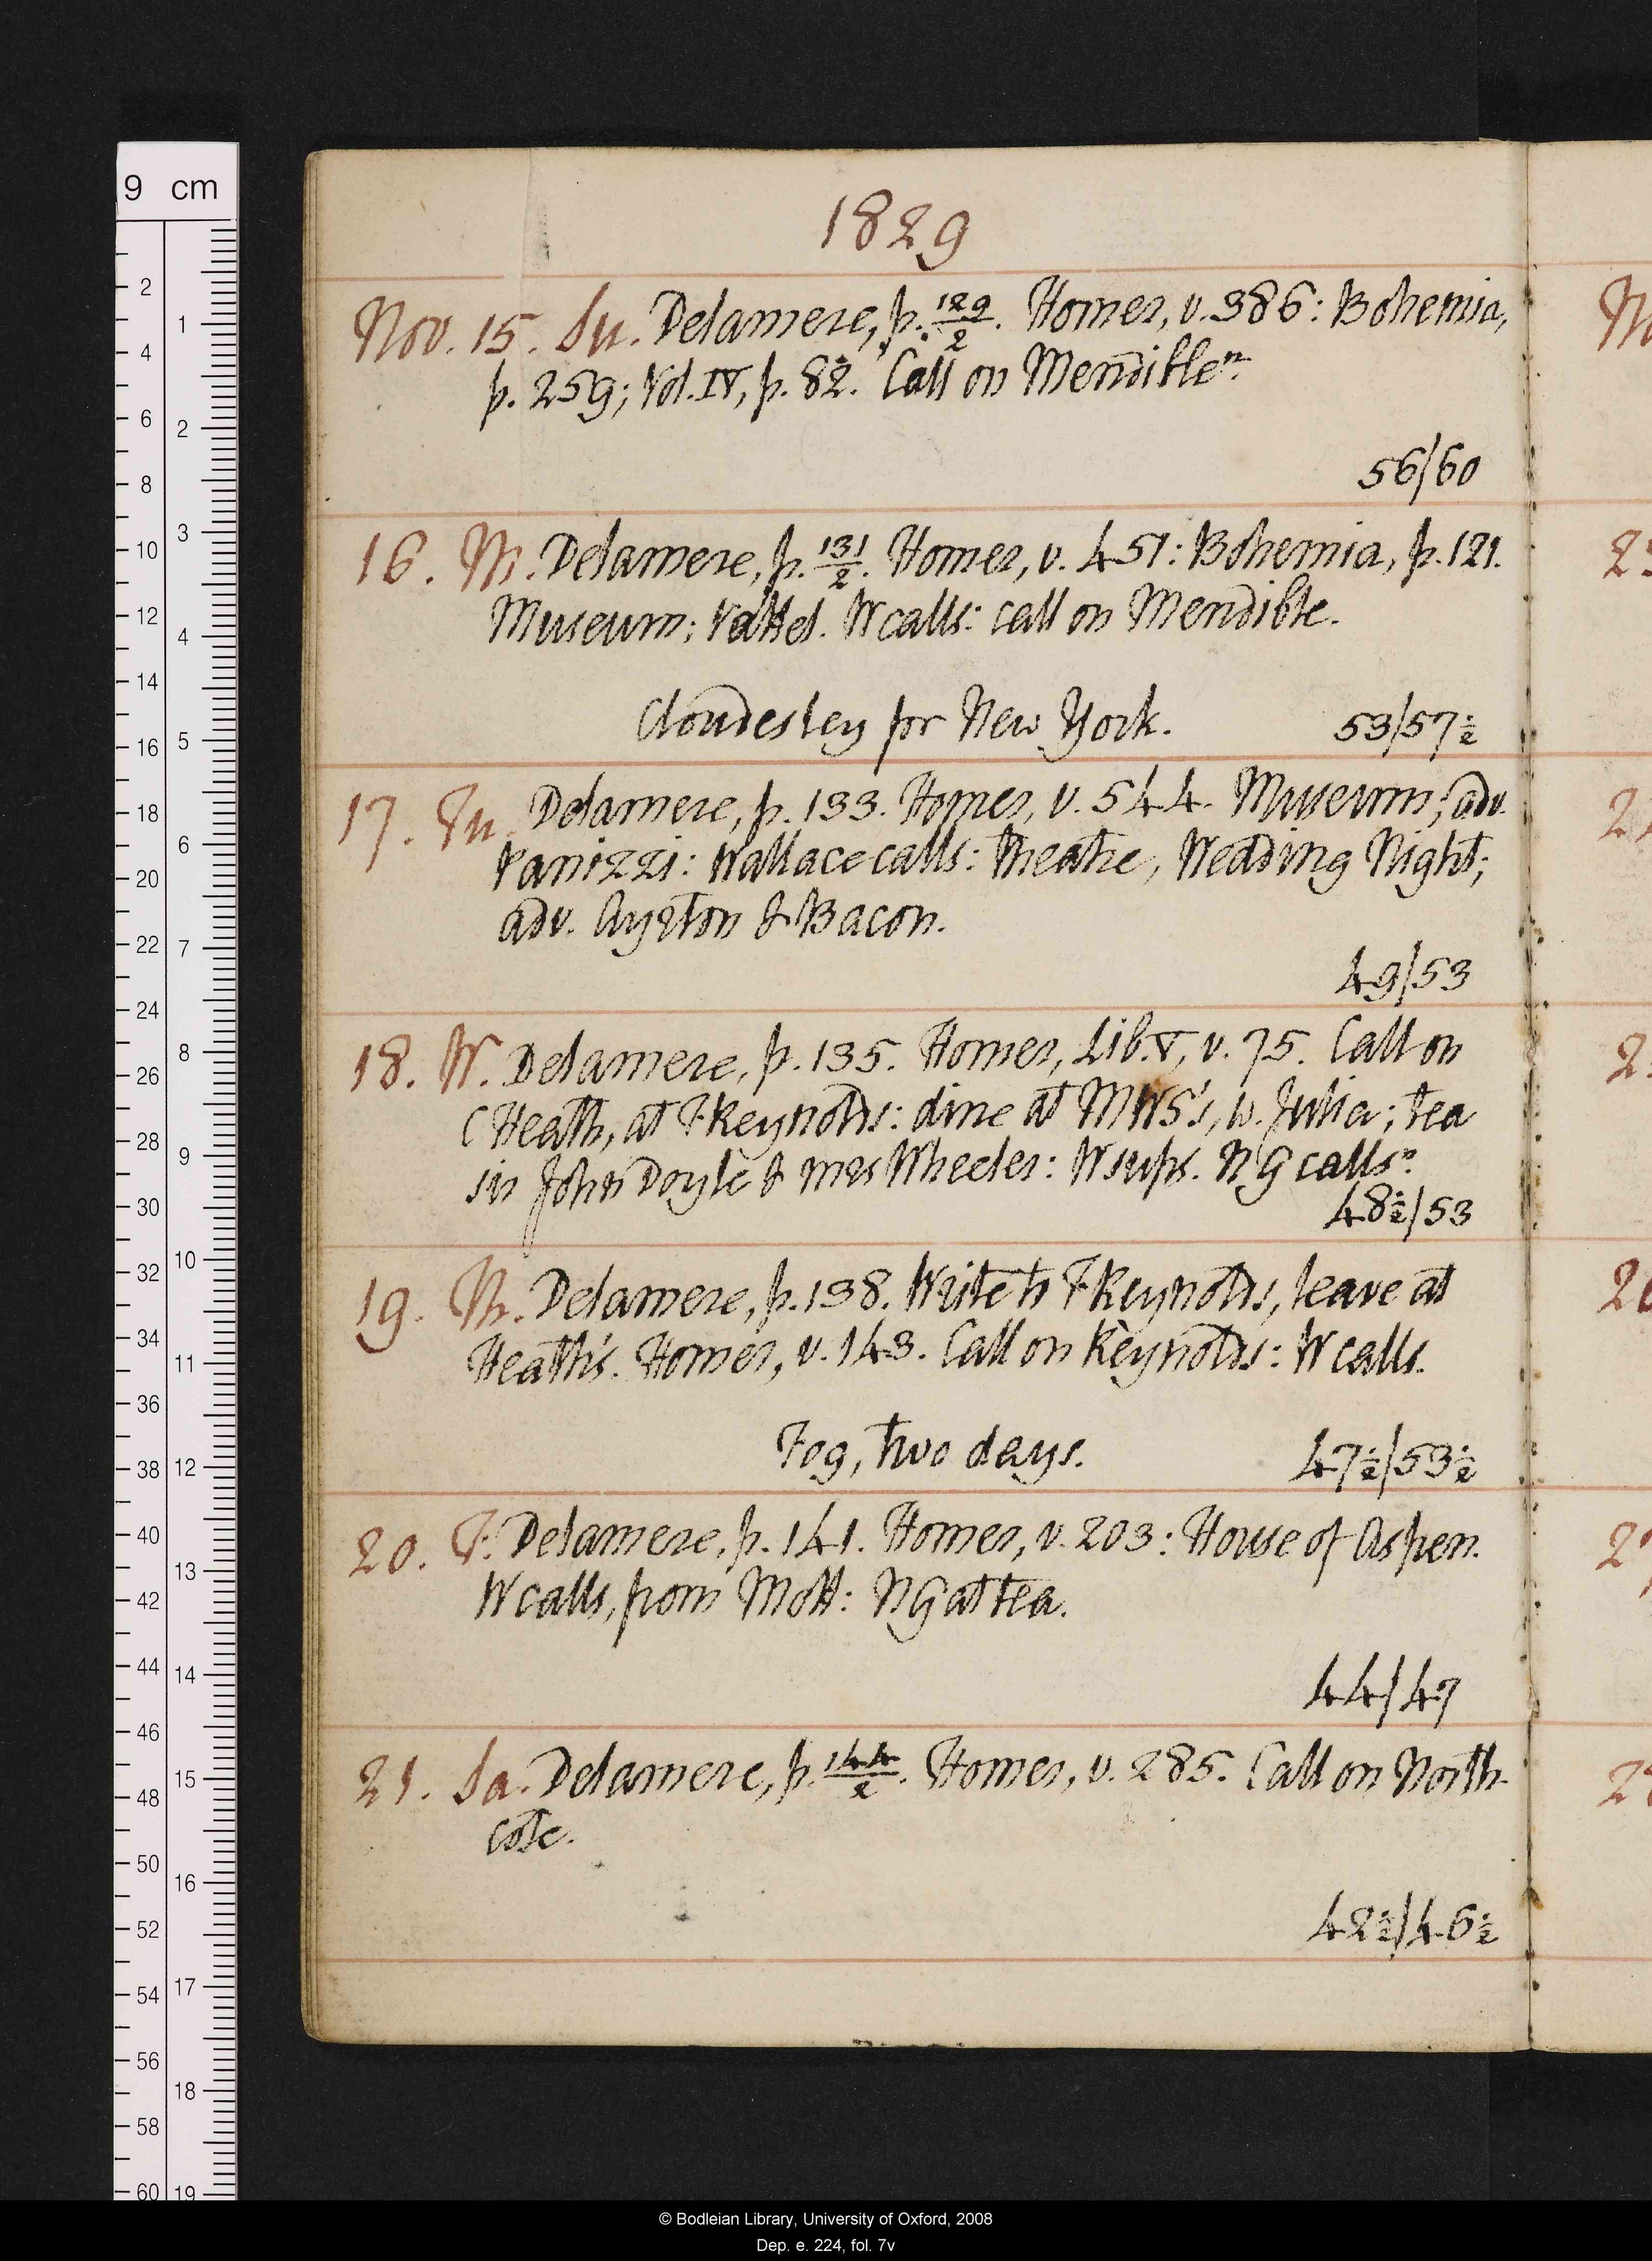 1829
Nov. 15. Su. Delamere, p. 129/2. Homer, v. 386: Bohemia,
p. 259; Vol. IV, p. 82. Call on Mendible n.
56/60
16. M. Delamere, p. 131/2. Homer, v. 451: Bohemia, p. 121.
Museum; Vattel. W calls: call on Mendible.
Cloudesley for New York. 53/57½
17. Tu. Delamere, p. 133. Homer, v. 544. Museum; adv.
Panizzi: Wallace calls: theatre, Wedding Night;
adv. Ayrton & Bacon.
49/53
18. W. Delamere, p. 135. Homer, Lib. V, v. 75. Call on
C Heath, at F Reynolds: dine at MWS's, w. Julia; tea
sir John Doyle & mrs Wheeler: W sups. N G calls n.
48½/53
19. Th. Delamere, p. 138. Write to F Reynolds, leave at
Heath's. Homer, v. 143. Call on Reynolds: W calls.
Fog, two days. 47½/53½
20. F. Delamere, p. 141. Homer, v. 203: House of Aspen.
W calls, from Mott: N G at tea.
44/47
21. Sa. Delamere, p. 144/2. Homer, v. 285. Call on North-
cote.
42½/46½
9 cm
2
4
6
8
10
12
14
16
18
20
22
24
26
28
30
32
34
36
38
40
42
44
46
48
50
52
54
56
58
60
1
2
3
4
5
6
7
8
9
10
11
12
13
14
15
16
17
18
19
© Bodleian Library, University of Oxford, 2008
Dep. e. 224, fol. 7v